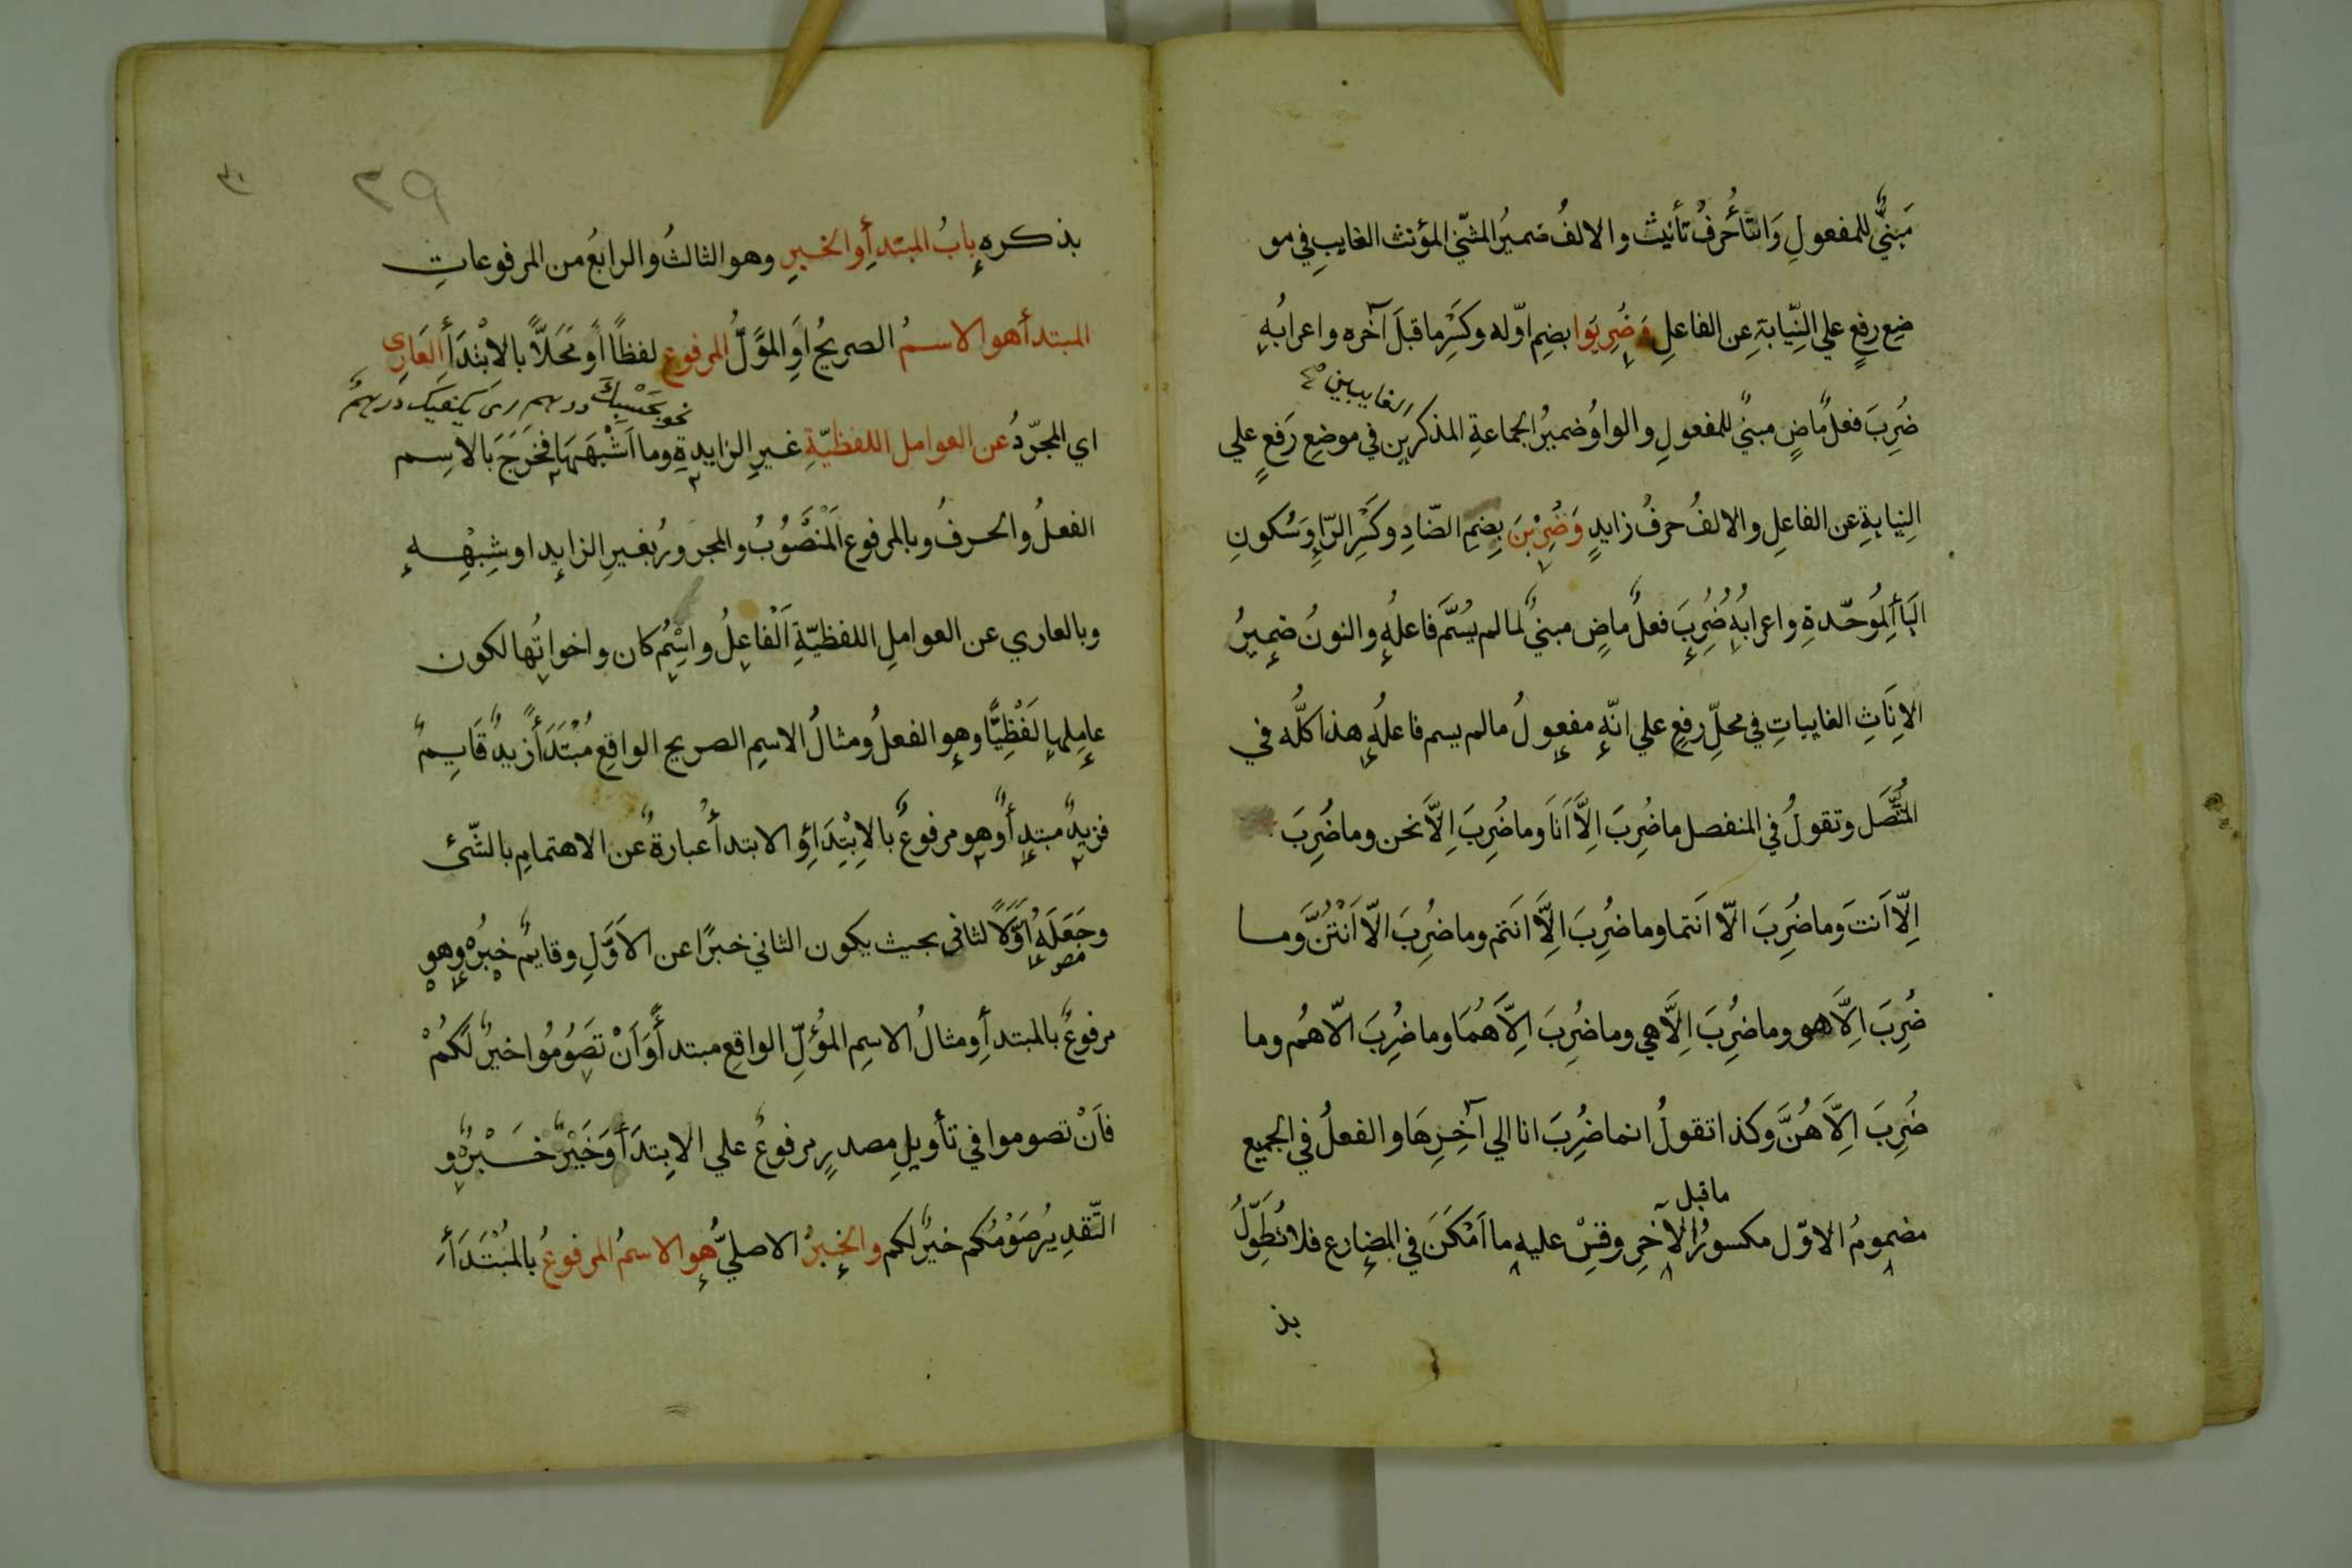 مَبنيٌّ للمفعولِ وَالتَّأُ حرفُ تأنيثٍ والالفُ ضميرُ المثنّي المؤنث الغايبِ في مو
ضِع رفعٍ علي النِّيابَةِ عن الفاعلِ وَضُرِبَوا بضمِ اوّله وكَسْرِ ما قبلَ آخره واعرابُهٖ
ضُرِبَ فعلٌ ماضٍ مبنيٌ للمفعولِ والواوُ ضميرُ الجماعةِ المذكرين في موضعِ رَفعٍ علي
الغايبين صح
النِيابةِ عن الفاعلِ والالفُ حرفُ زايدٍ وَضُرِبْنَ بِضمِ الضّادِ وكَسْرِ الرّاءِ وَسُكونِ
البَأ المُوحّدةِ واعرابُهٖ ضُرِبَ فعلٌ ماضٍ مبنيٌ لما لم يُسَمَّ فاعلُهٖ والنونُ ضميرُ
الاِنَاثِ الغايباتِ في محلِّ رفعٍ علي انّهٖ مفعولُ ما لم يسم فاعلُهٖ هذا كلُّه في
المُتَّصَل وتقولُ في المنفصل ماضُرِبَ اِلَّا اَنَا وماضُرِبَ اِلَّا نحن وماضُرِبَ
اِلّا اَنتَ وماضُرِبَ الّا انَتما وماضُرِبَ اِلَّا انَتم وماضُرِبَ الّا اَنْتُنَّ وما
ضُرِبَ اِلَّا هو وماضُرِبَ اِلَّا هي وماضُرِبَ اِلَّا هُمَا وماضُرِبَ الّا هُم وما
ضُرِبَ اِلَّا هُنَّ وكذا تقولُ انما ضُرِبَ انا الي آخِرِهَا والفعلُ في الجميع
مضمومُ الاوّل مكسورُ ما قبل الاخرِ وقِسْ عليه ما اَمْكَنَ في المضارع فلا نُطَوِّلُ
بذ
٢٩
٣٠
بذكرهٖ بابُ المبتدأِ والخبرِ وهو الثالثُ والرابعُ من المرفوعاتِ
المبتدأ هو الاسمُ الصريحُ اَوِ المؤَّلُ المرفوع لفظًا اَو مَحَلاًّ بالابْتدَأِ العَارِي
نحو بَحَسْبِكَ درهم اى يكفيك درهمٌ
اي المجرّدُ عن العوامل اللفظيّةِ غيرِ الزايدةِ وما اَشْبَهَهَا فخرَجَ بالاسِم
الفعلُ والحرفُ وبالمرفوع اَلْمَنْصُوبُ والمجرورُ بغيرِ الزايد او شِبْهِهٖ
وبالعاري عن العواملِ اللفظيّةِ اَلْفاعِلُ واسْمُ كان واخواتُها لكون
عاملِها لَفْظِيًّا وهو الفعلُ ومثالُ الاسِمِ الصريح الواقِع مُبْتَدَأً زيدٌ قَايمٌ
فزيدٌ مبتدأٌ وهو مرفوعٌ بالاِبْتِدَاءِ والابتدأُ عبارةٌ عن الاهتمامِ بالشّئ
وجَعَلَهٖ اوَّلًا لثاني بحيث يكون الثاني خبرًا عن الاَوَّلِ وقايمٌ خبرُه وهو
مرفوعٌ بالمبتدأِ ومثالُ الاسِم المؤُلِّ الواقِع مبتدأً وَاَنْ تَصُومُوا خيرٌ لَكُمْ
فاَنْ تصوموا في تأويلِ مصدرٍ مرفوعٌ علي الابِتدَأ وَخَيْرٌ خَبْرُهٗ و
التّقدِيرُ صَوْمُكم خيرٌ لكم والخبرُ الاصليُّ هو الاسمُ المرفوعُ بالمُبْتَدَأِ